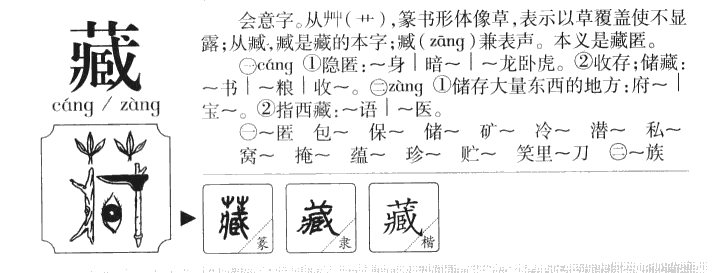 藏
cáng / zàng
会意字。从艸(艹),篆书形体像草,表示以草覆盖使不显
露;从臧,臧是藏的本字;臧(zāng)兼表声。本义是藏匿。
㊀cáng ①隐匿:~身|暗~|~龙卧虎。②收存;储藏:
~书|~粮|收~。㊁zàng ①储存大量东西的地方:府~|
宝~。②指西藏:~语|~医。
㊀~匿 包~ 保~ 储~ 矿~ 冷~ 潜~ 私~
窝~ 掩~ 蕴~ 珍~ 贮~ 笑里~刀 ㊁~族
藏 篆 藏 隶 藏 楷